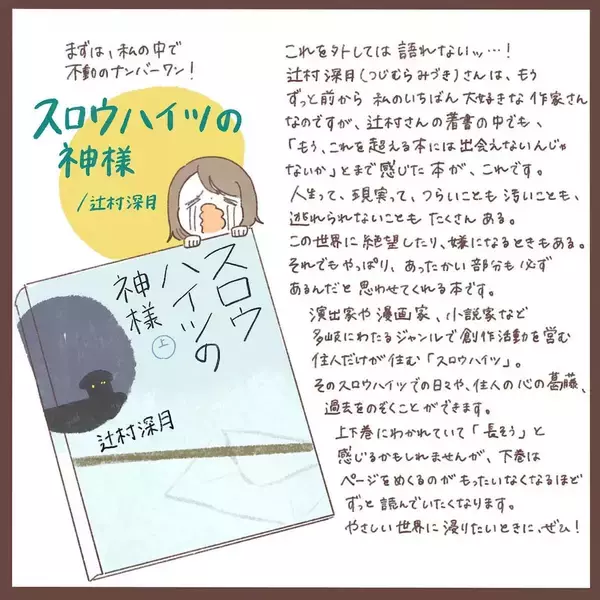 まずは、私の中で
不動のナンバーワン！
スロウハイツの
神様
/辻村深月
スロウ
ハイツの
神様
上
辻村深月
これを外しては語れないッ…！
辻村深月(つじむらみづき)さんは、もう
ずっと前から 私のいちばん大好きな作家さん
なのですが、辻村さんの著書の中でも、
「もう、これを超える本には出会えないんじゃ
ないか」とまで感じた本が、これです。
人生って、現実って、つらいことも汚いことも、
逃れられないことも たくさんある。
この世界に絶望したり、嫌になるときもある。
それでもやっぱり、あったかい部分も必ず
あるんだと思わせてくれる本です。
演出家や漫画家、小説家など
多岐にわたるジャンルで創作活動を営む
住人だけが住む「スロウハイツ」。
そのスロウハイツでの日々や、住人の心の葛藤、
過去をのぞくことができます。
上下巻にわかれていて「長そう」と
感じるかもしれませんが、下巻は
ページをめくるのがもったいなくなるほど
ずっと読んでいたくなります。
やさしい世界に浸りたいときに、ぜひ！